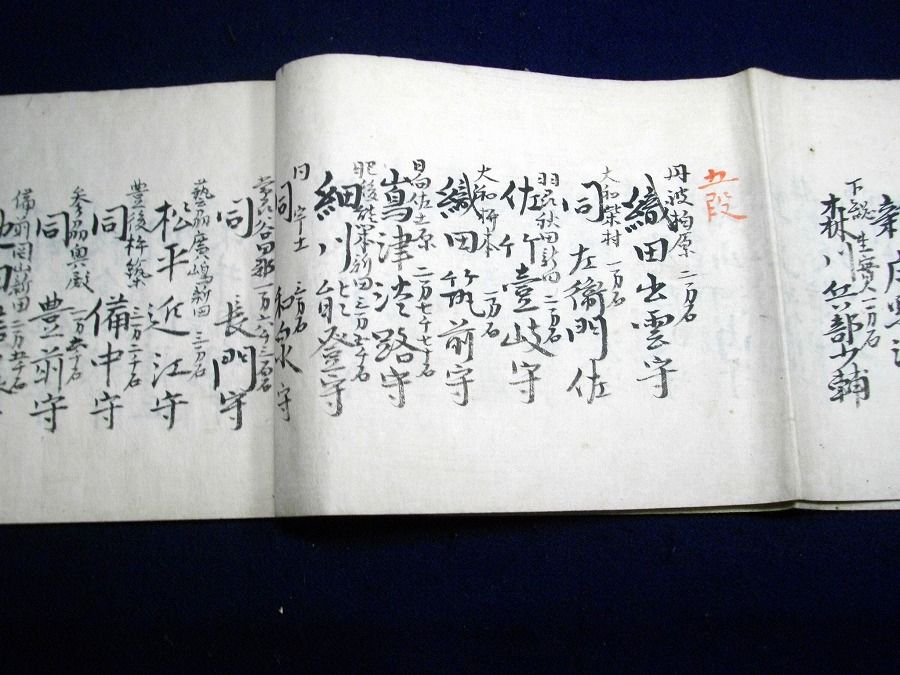 下総生實 一万石
森川兵部少輔
五段
丹波柏原 二万石
織田出雲守
大和柴村 一万石
同 左衛門佐
羽州秋田新田 二万石
佐竹壹岐守
大和柳本 一万石
織田筑前守
日向佐土原 二万七千七十石
嶌津淡路守
肥後熊本新田 三万五千石
細川能登守
同 宇土 三万石
同 和泉守
常州谷田部 一万六千三百石
同 長門守
藝州廣嶋新田 三万石
松平近江守
豊後杵築 三万二千石
同 備中守
参州奥殿 一万六千石
同 豊前守
備前岡山新田 二万五千石